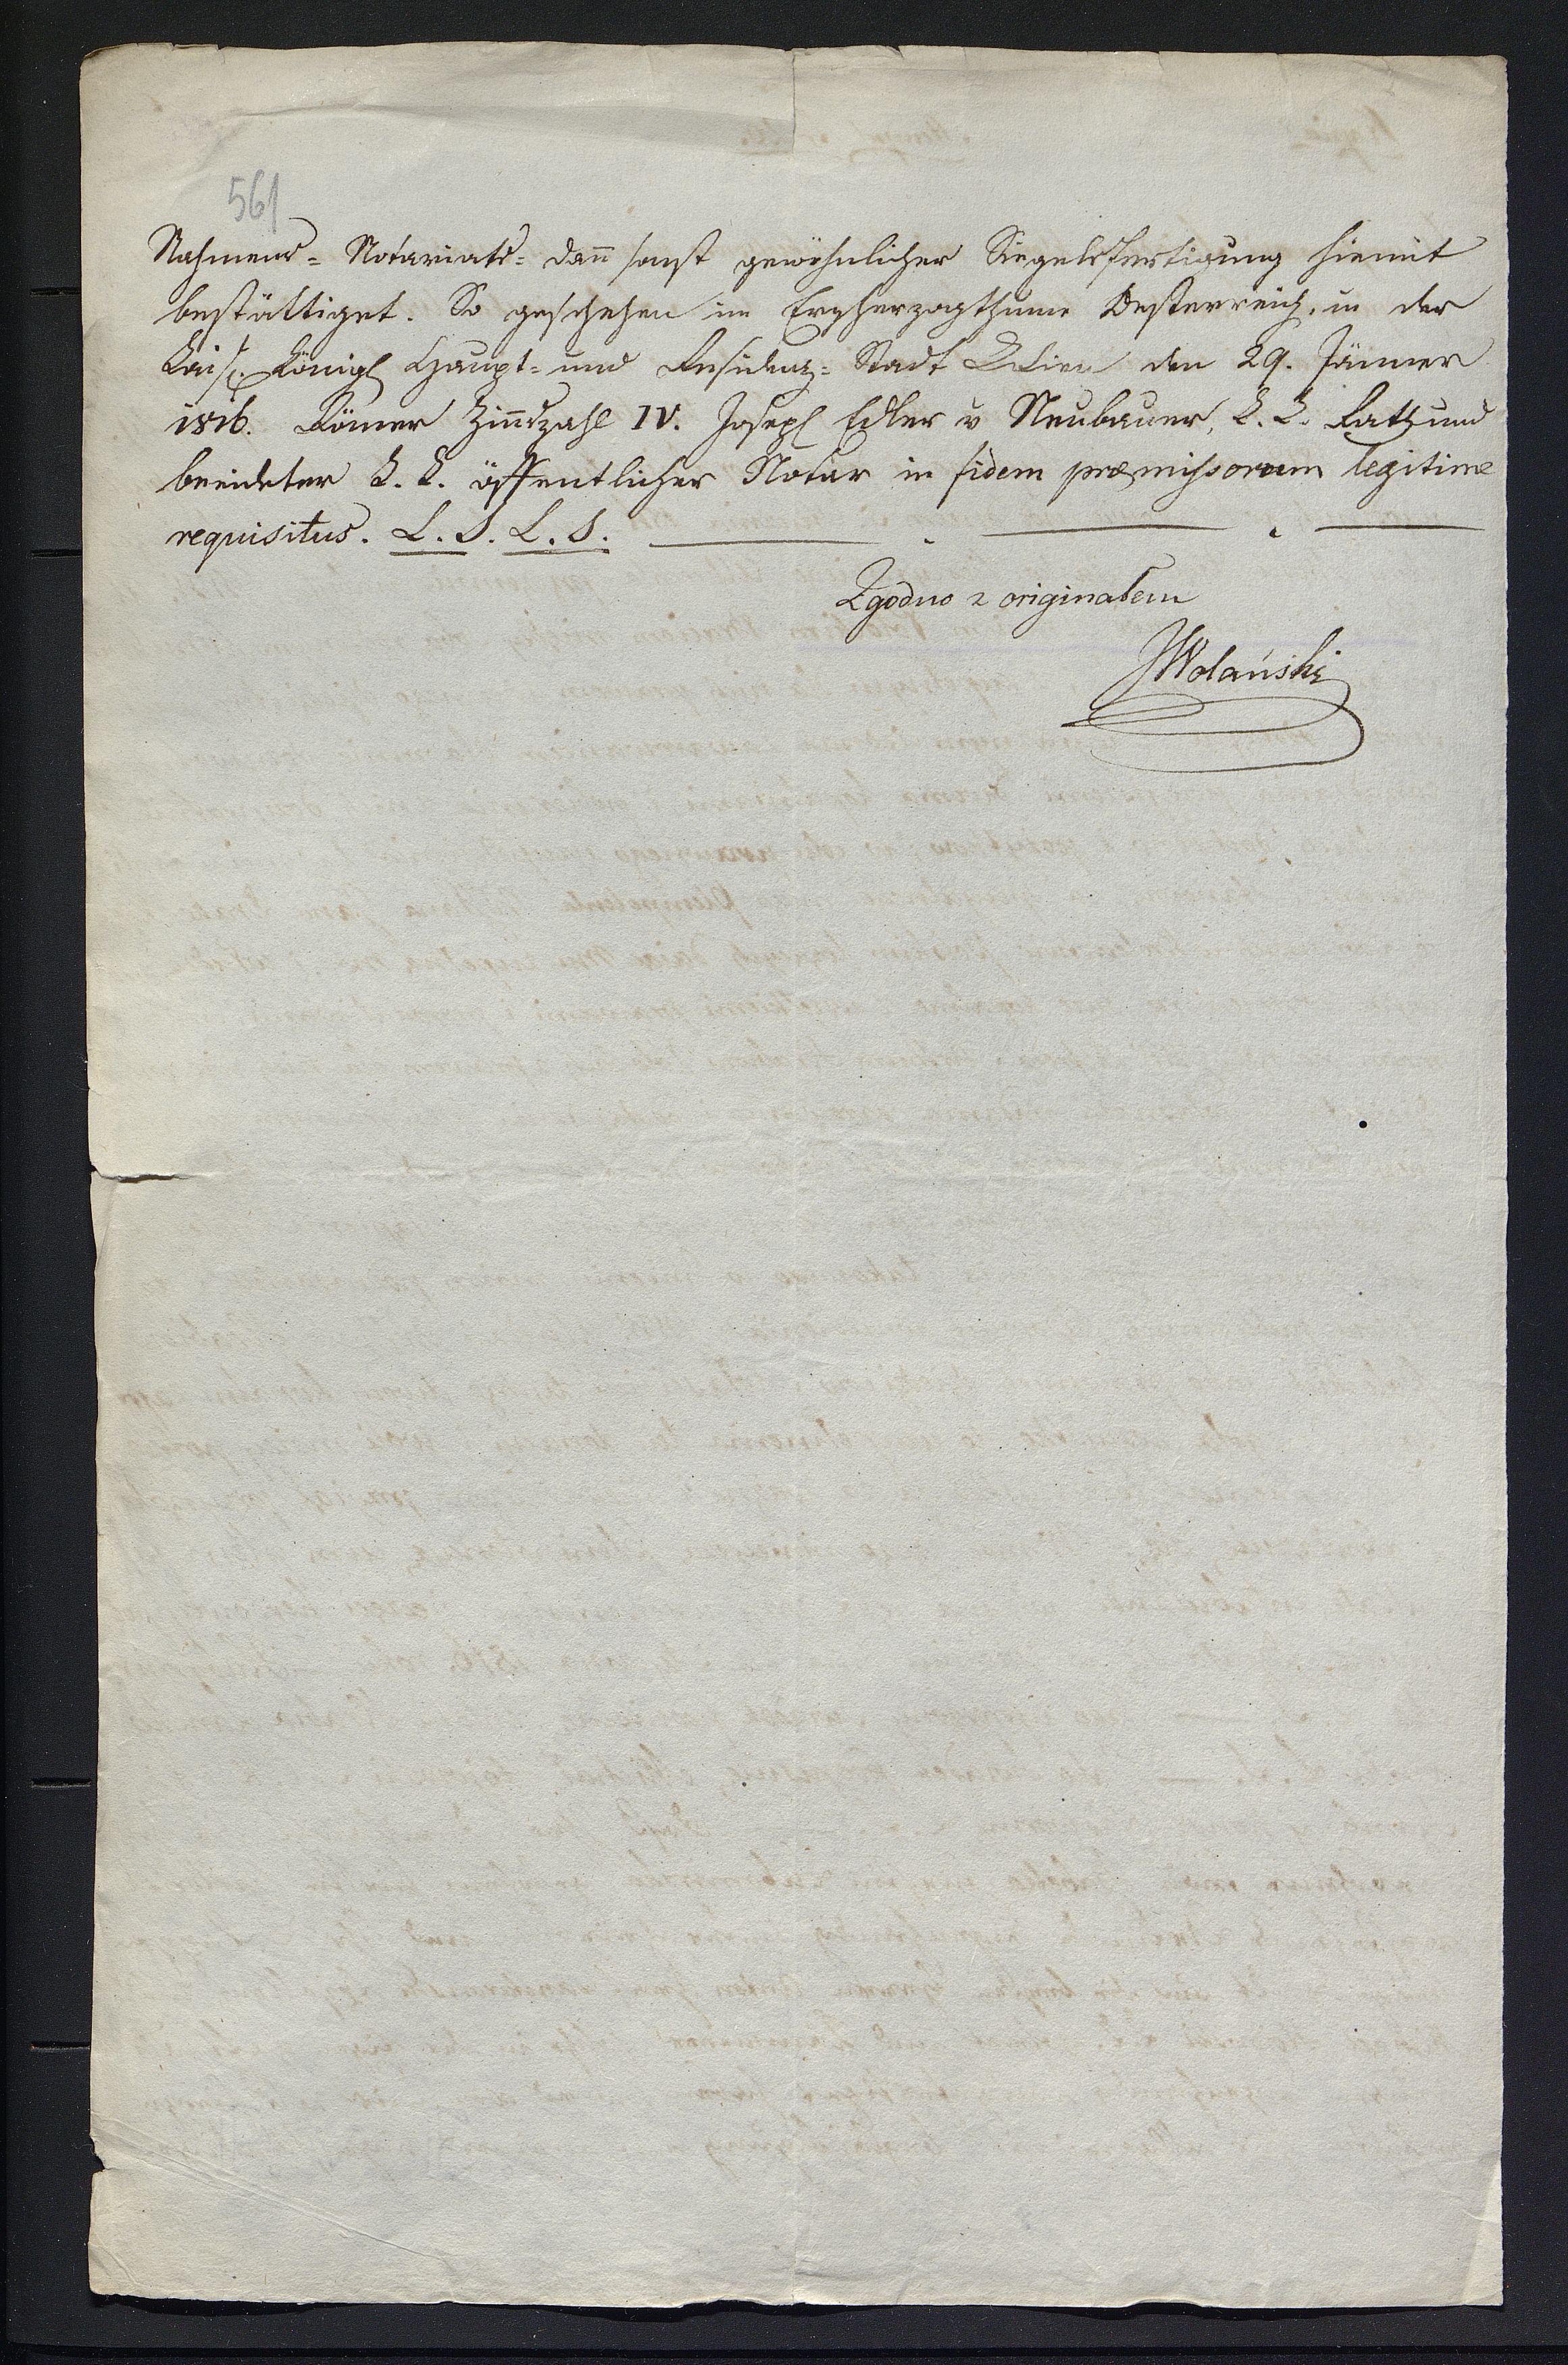 561
Nahmens- Notariats- dan̄ sonst gewöhnlicher Siegelsfertigung hiemit
bestättiget. So geschehen im Erzherzogthume Oesterreich, in der
Kais. Königl Haupt- und Residenz- Stadt Wien den 29. Jänner
1816. Römer Zin̄szahl IV. Joseph Edler v Neubauer, K. K. Rath und
beeideter K. K. öffentlicher Notar in fidem præmissorum legitime
requisitus. L. S. L. S.
Zgodno z originałem
JWolański